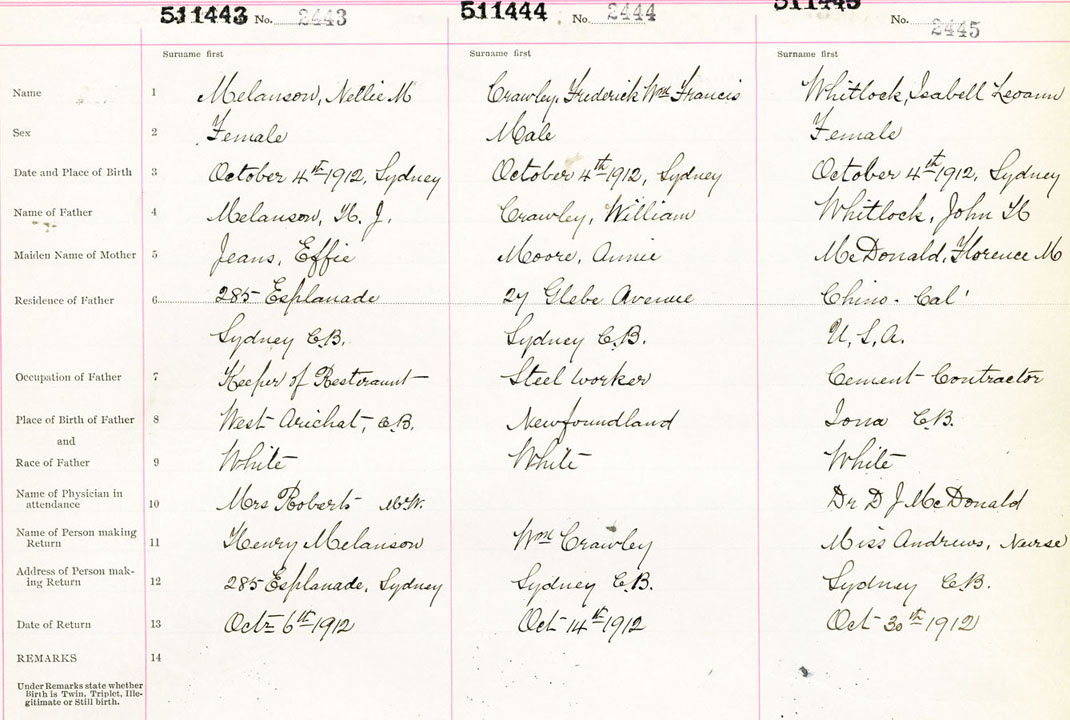 511443 No. 2443 511444 No. 2444 511445 No. 2445
Surname first Surname first Surname first
Name 1 Melanson, Nellie M Crawley, Frederick Wm Francis Whitlock, Isabell Leoann
Sex 2 Female Male Female
Date and Place of Birth 3 October 4th 1912, Sydney October 4th 1912, Sydney October 4th 1912, Sydney
Name of Father 4 Melanson, H. J. Crawley, William Whitlock, John H
Maiden Name of Mother 5 Jeans, Effie Moore, Annie McDonald, Florence M
Residence of Father 6 285 Esplanade 27 Glebe Avenue Chino. Cal'
Sydney C.B. Sydney C.B. U.S.A.
Occupation of Father 7 Keeper of Resteraunt Steel worker Cement Contractor
Place of Birth of Father 8 West Arichat, C.B. Newfoundland Iona C.B.
and
Race of Father 9 White White White
Name of Physician in
attendance 10 Mrs Roberts M.W. Dr D J McDonald
Name of Person making
Return 11 Henry Melanson Wm Crawley Miss Andrews, Neurse
Address of Person mak-
ing Return 12 285 Esplanade, Sydney Sydney C.B. Sydney C.B.
Date of Return 13 Oct 6th 1912 Oct 14th 1912 Oct 30th 1912
REMARKS 14
Under Remarks state whether
Birth is Twin, Triplet, Ille-
gitimate or Still birth.